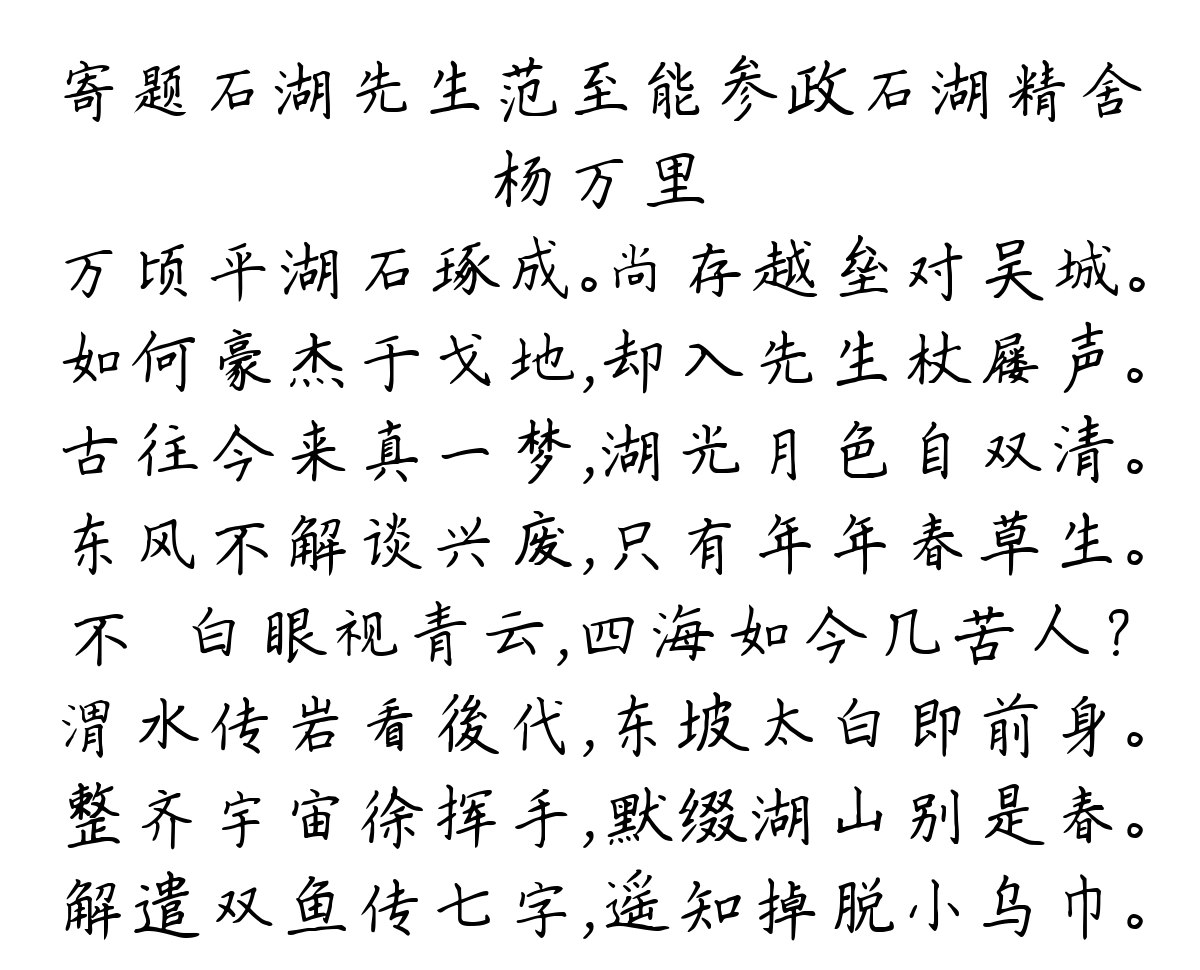 寄题石湖先生范至能参政石湖精舍
杨万里
万顷平湖石琢成。尚存越垒对吴城。
如何豪杰于戈地,却入先生杖屦声。
古往今来真一梦,湖光月色自双清。
东风不解谈兴废,只有年年春草生。
不 白眼视青云,四海如今几苦人?
渭水传岩看後代,东坡太白即前身。
整齐宇宙徐挥手,默缀湖山别是春。
解遣双鱼传七字,遥知掉脱小乌巾。